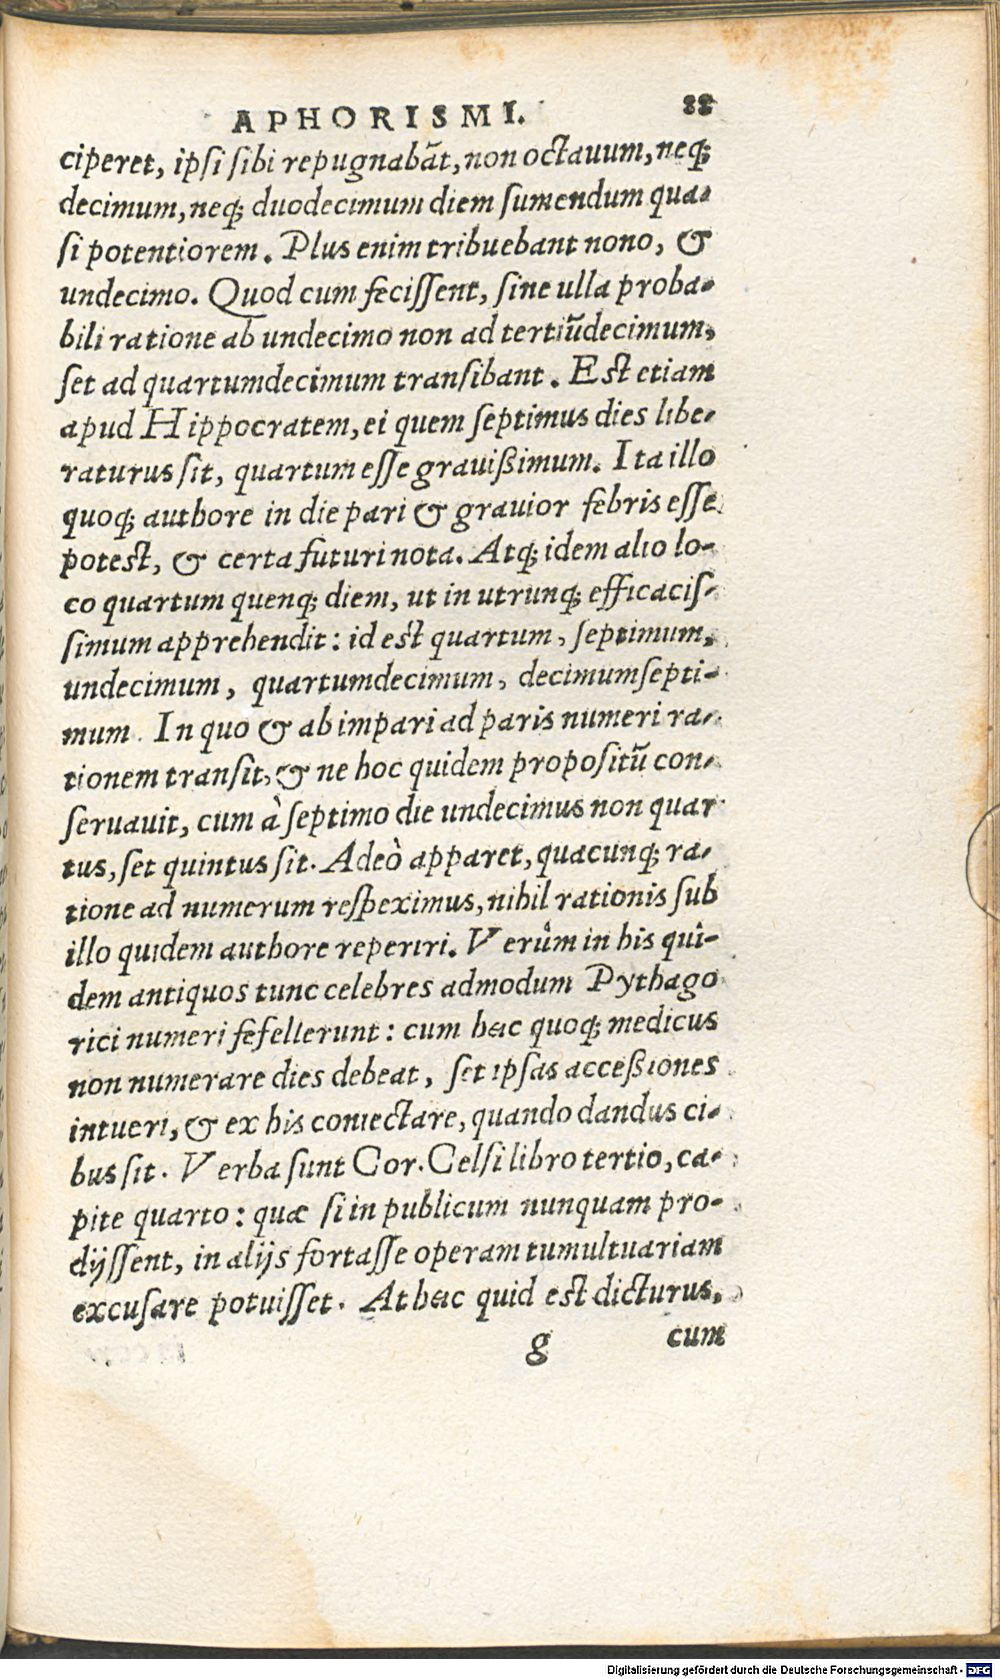 APHORISMI. 88
ciperet, ipsi sibi repugnabāt, non octauum, neq;
decimum, neq; duodecimum diem sumendum qua-
si potentiorem. Plus enim tribuebant nono, &
undecimo. Quod cum fecissent, sine ulla proba-
bili ratione ab undecimo non ad tertiūdecimum,
set ad quartumdecimum transibant. Est etiam
apud Hippocratem, ei quem septimus dies libe-
raturus sit, quartum esse grauißimum. Ita illo
quoq; authore in die pari & grauior febris esse
potest, & certa futuri nota. Atq; idem alio lo-
co quartum quenq; diem, ut in utrunq; efficacis-
simum apprehendit: id est quartum, septimum,
undecimum, quartumdecimum, decimumsepti-
mum. In quo & ab impari ad paris numeri ra-
tionem transit, & ne hoc quidem propositū con-
seruauit, cum à septimo die undecimus non quar
tus, set quintus sit. Adeò apparet, quacunq; ra-
tione ad numerum respeximus, nihil rationis sub
illo quidem authore reperiri. Verùm in his qui-
dem antiquos tunc celebres admodum Pythago
rici numeri fefellerunt: cum hæc quoq; medicus
non numerare dies debeat, set ipsas acceßiones
intueri, & ex his coniectare, quando dandus ci-
bus sit. Verba sunt Cor. Celsi libro tertio, ca-
pite quarto: quæ si in publicum nunquam pro-
dijssent, in alijs fortasse operam tumultuariam
excusare potuisset. At hæc quid est dicturus,
g cum
Digitalisierung gefördert durch die Deutsche Forschungsgemeinschaft - DFG